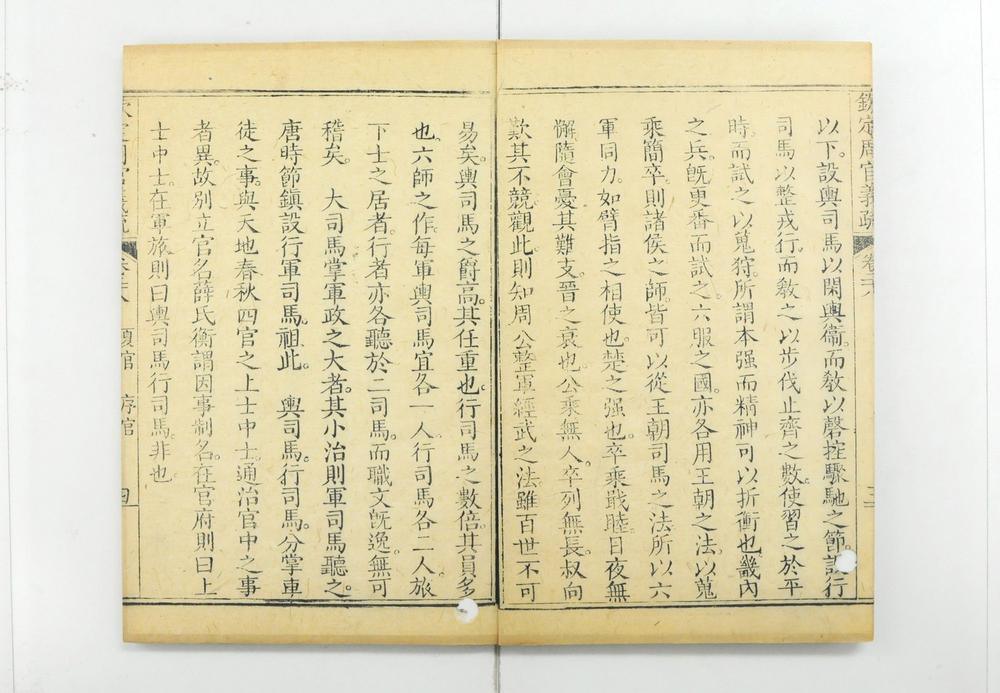 欽定周官義疏 卷二十八 三
以下。設輿司馬以閑輿衞。而教以磬控驟馳之節。設行
司馬以整戎行。而教之以步伐止齊之數。使習之於平
時。而試之以蒐狩。所謂本强而精神可以折衝也。畿內
之兵。旣更番而試之。六服之國。亦各用王朝之法。以蒐
乘簡卒。則諸侯之師。皆可以從王朝司馬之法。所以六
軍同力。如臂指之相使也。楚之强也。卒乘戢睦。日夜無
懈。隨會憂其難支。晉之衰也。公乘無人。卒列無長。叔向
歎其不競。觀此則知周公整軍經武之法。雖百世不可
易矣。輿司馬之爵高。其任重也。行司馬之數倍。其員多
也。六師之作。每軍輿司馬宜各一人。行司馬各二人。旅
下士之居者。行者亦各聽於二司馬。而職文旣逸。無可
稽矣。 大司馬掌軍政之大者。其小治則軍司馬聽之。
唐時節鎮設行軍司馬。祖此。 輿司馬。行司馬。分掌車
徒之事。與天地春秋四官之上士中士。通治官中之事
者異。故別立官名。薛氏衡謂因事制名。在官府則曰上
士中士。在軍旅則曰輿司馬行司馬。非也。
夏官 序官 四